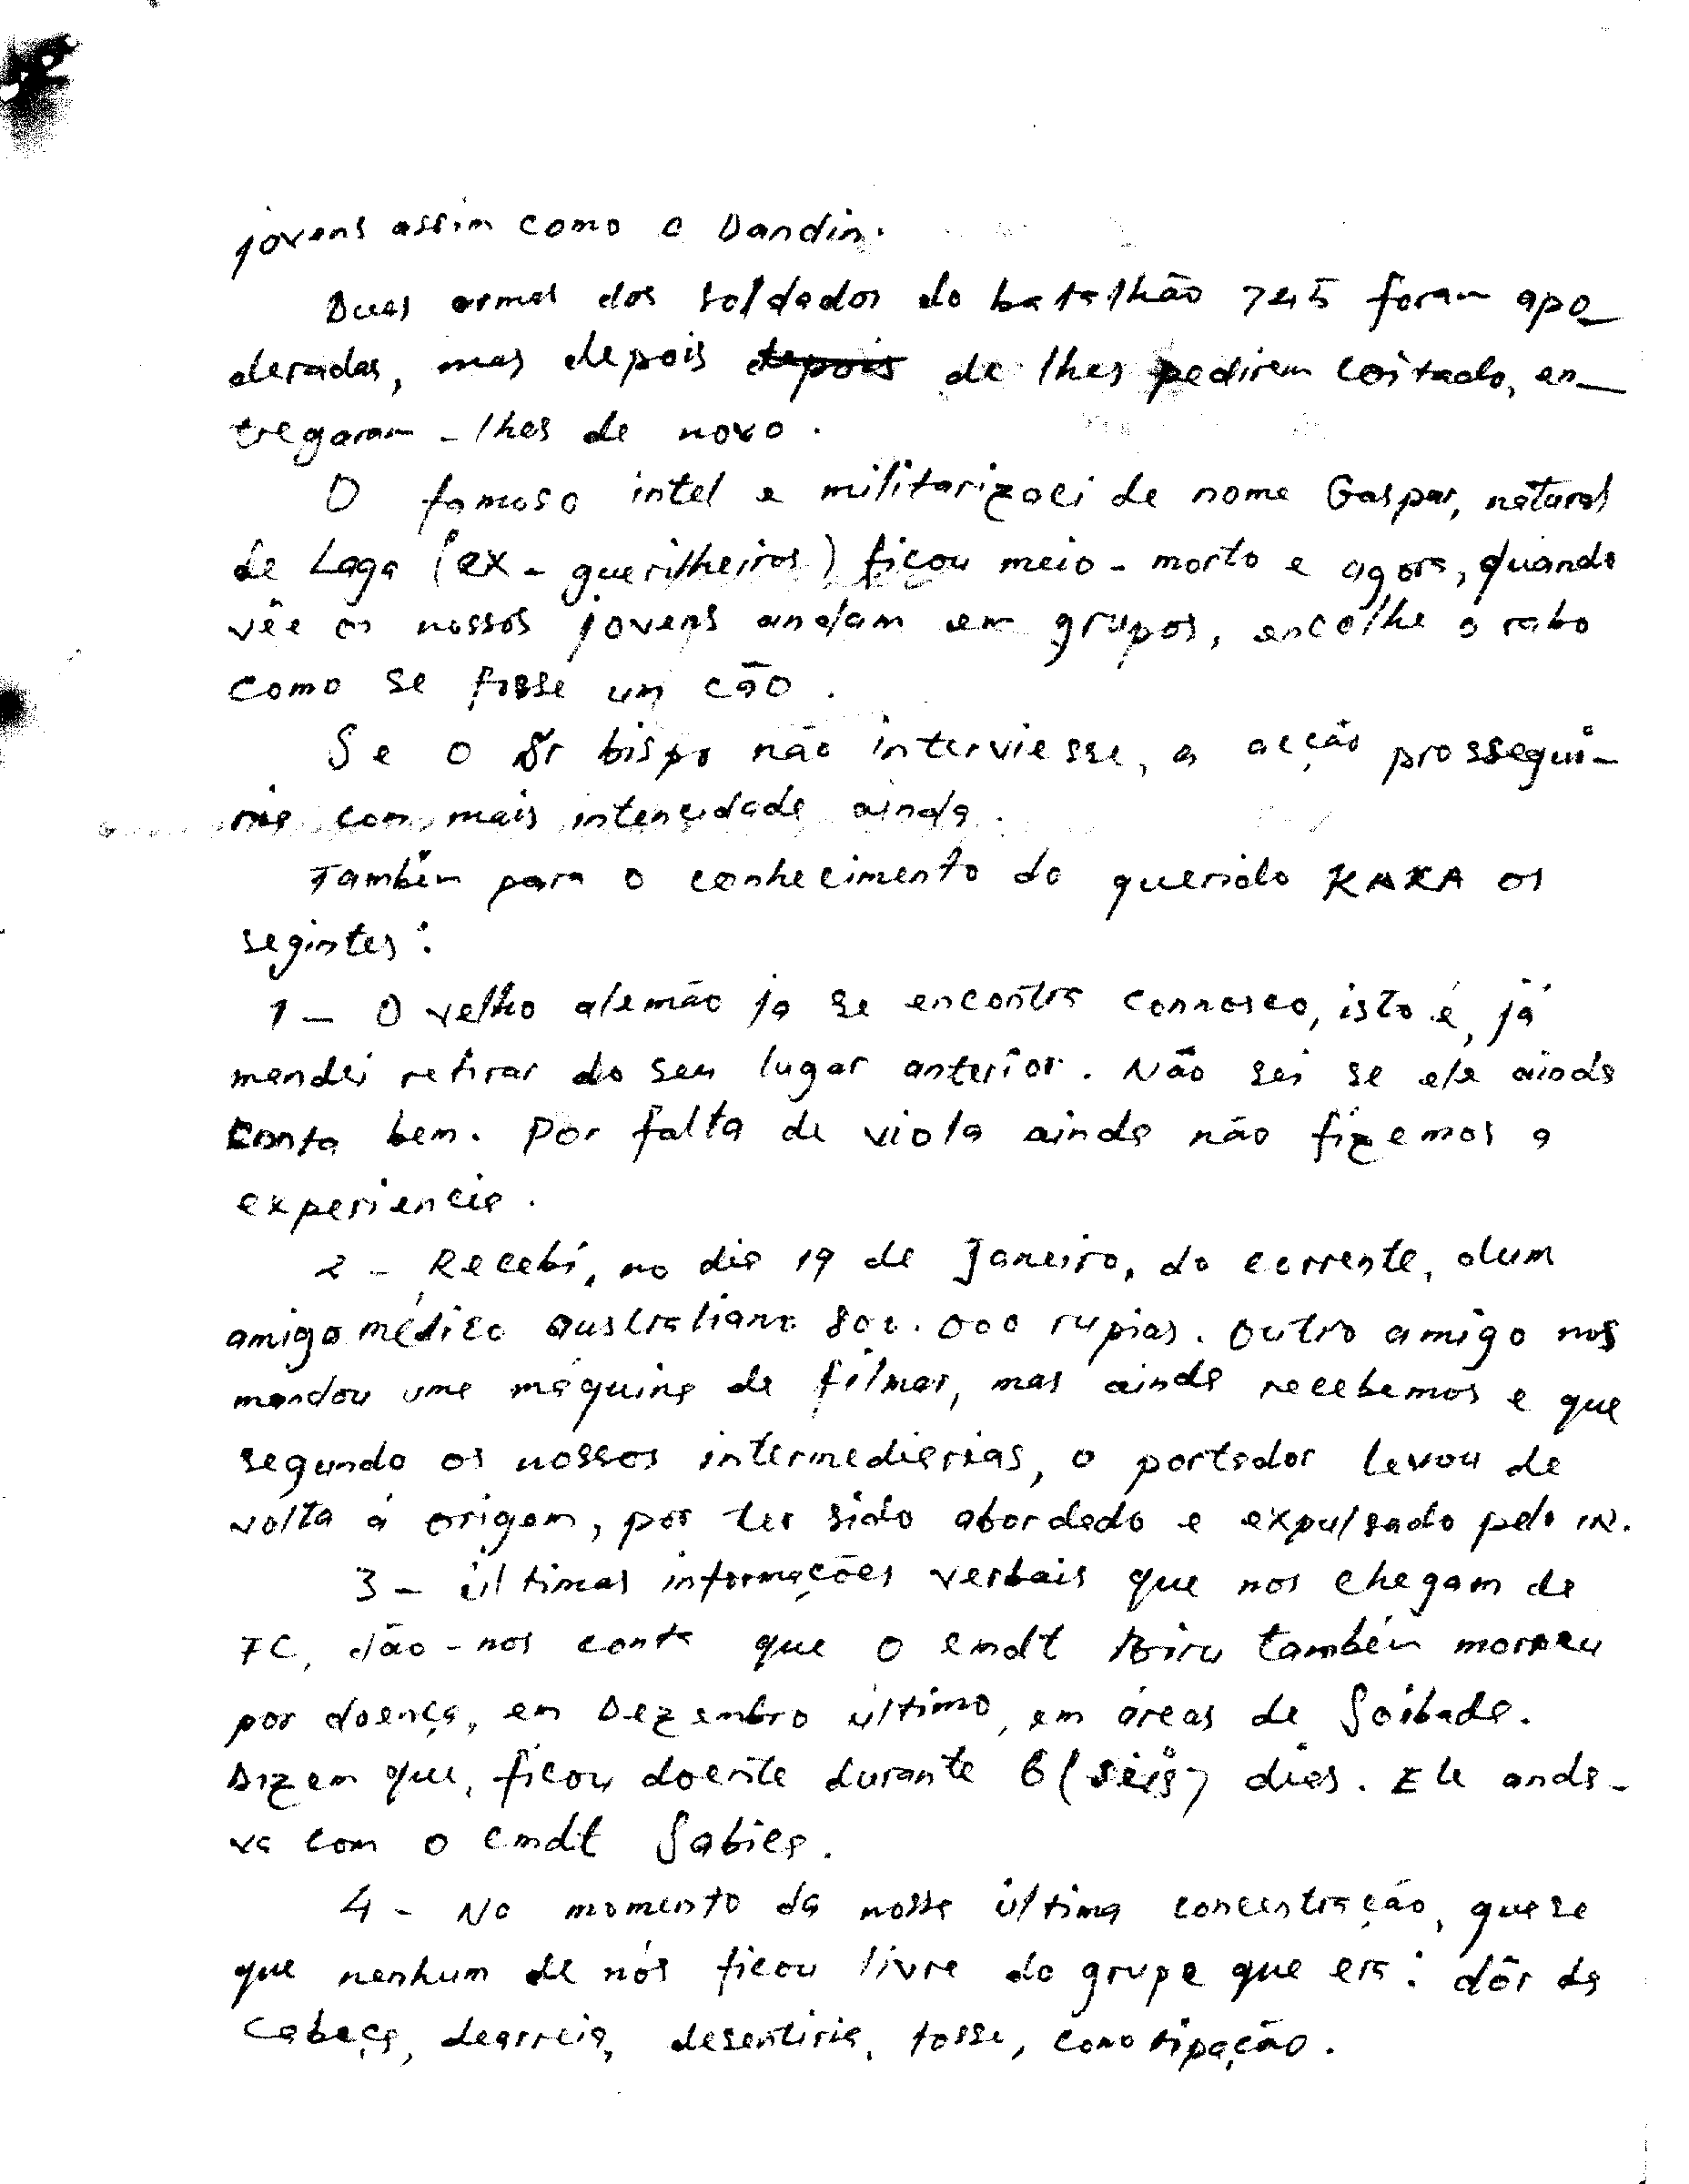 jovens assim como o Dandin.
Duas armas dos soldados do batalhão 745 foram apo_
deradas, mas depois depois de lhes pedirem coitado, en_
tregaram-lhes de novo.
O famoso intel e militarizaci de nome Gaspar, natural
de Laga (ex-guerilheiros) ficou meio-morto e agora, quando
vêe os nossos jovens andam em grupos, encolhe o rabo
como se fosse um cão.
Se o Sr bispo não interviesse, a acção prossegui-
ria com mais intencidade ainda.
Também para o conhecimento do querido KAKA os
segintes:
1 - O velho alemão ja se encontra connosco, isto é, já
mandei retirar do seu lugar anterior. Não sei se ele ainda
canta bem. Por falta de viola ainda não fizemos a
experiencia.
2 - Recebi, no dia 19 de Janeiro, do corrente, dum
amigo médico australiano 800.000 rupias. Outro amigo nos
mandou uma máquina de filmar, mas ainda recebemos e que
segundo os nossos intermediarias, o portador levou de
volta á origem, por ter sido abordado e expulsado pelo IN.
3 - últimas informações verbais que nos chegam de
FC, dão-nos conta que o cmdt também morreu
por doença, em Dezembro último, em áreas de Soibada.
Dizem que, ficou doente durante 6 (seis) dias. Ele anda-
va com o cmdt Sabica.
4 - No momento da nossa última concentração, quese
que nenhum de nós ficou livre do grupe que era: dôr da
cabeça, dearreia, desentiria, tosse, constipação.